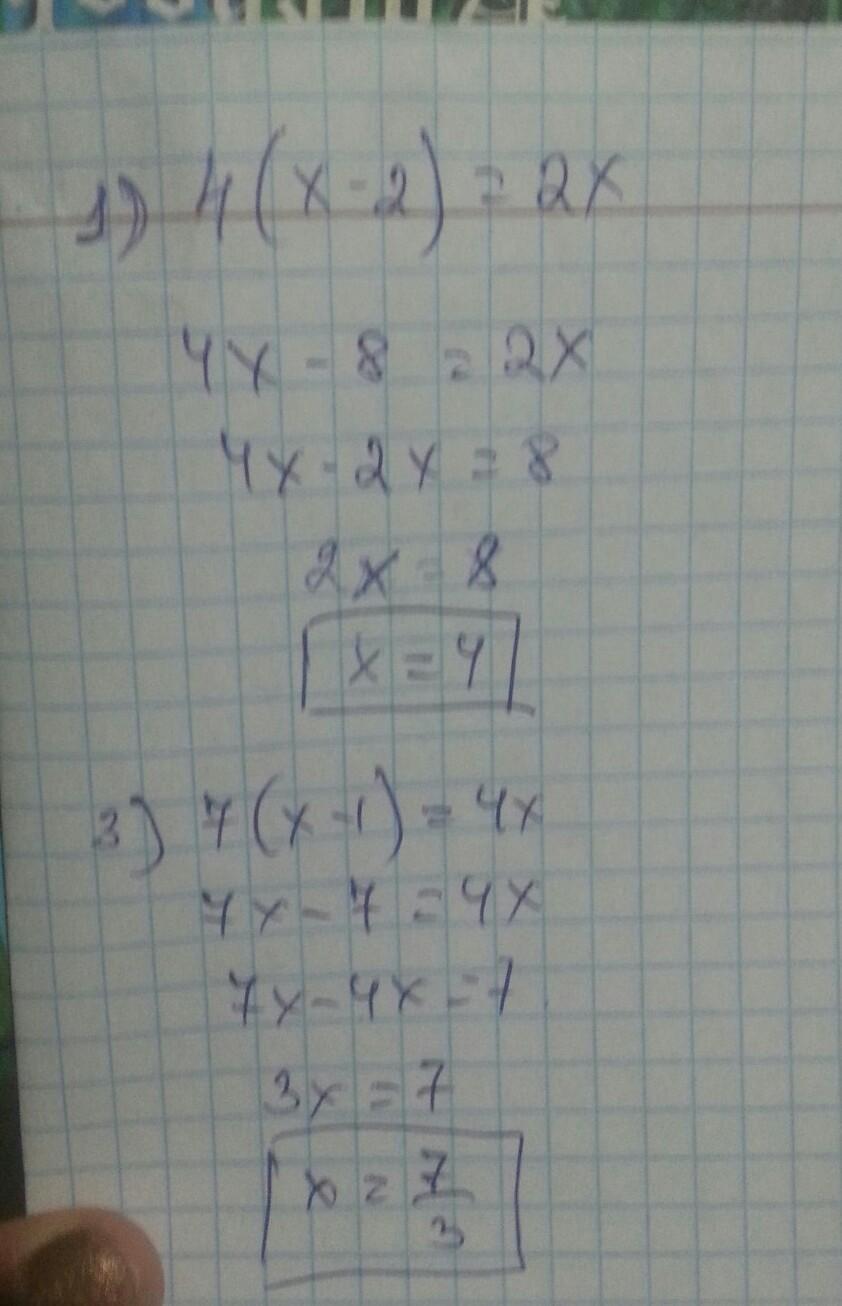 1) 4(x-2) = 2x
4x - 8 = 2x
4x - 2x = 8
2x = 8
x = 4
3) 7(x-1) = 4x
7x - 7 = 4x
7x - 4x = 7
3x = 7
x = 7/3